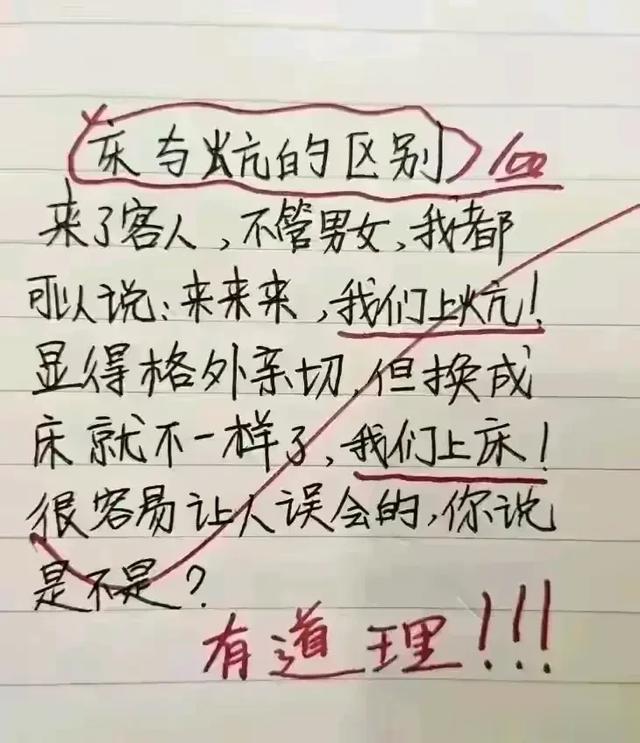 床与炕的区别 100
来了客人，不管男女，我都
可以说：来来来，我们上炕！
显得格外亲切，但换成
床就不一样了，我们上床！
很容易让人误会的，你说
是不是？
有道理!!!